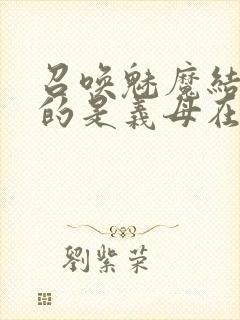 召唤魅魔结
的是義母在
劉紫荣